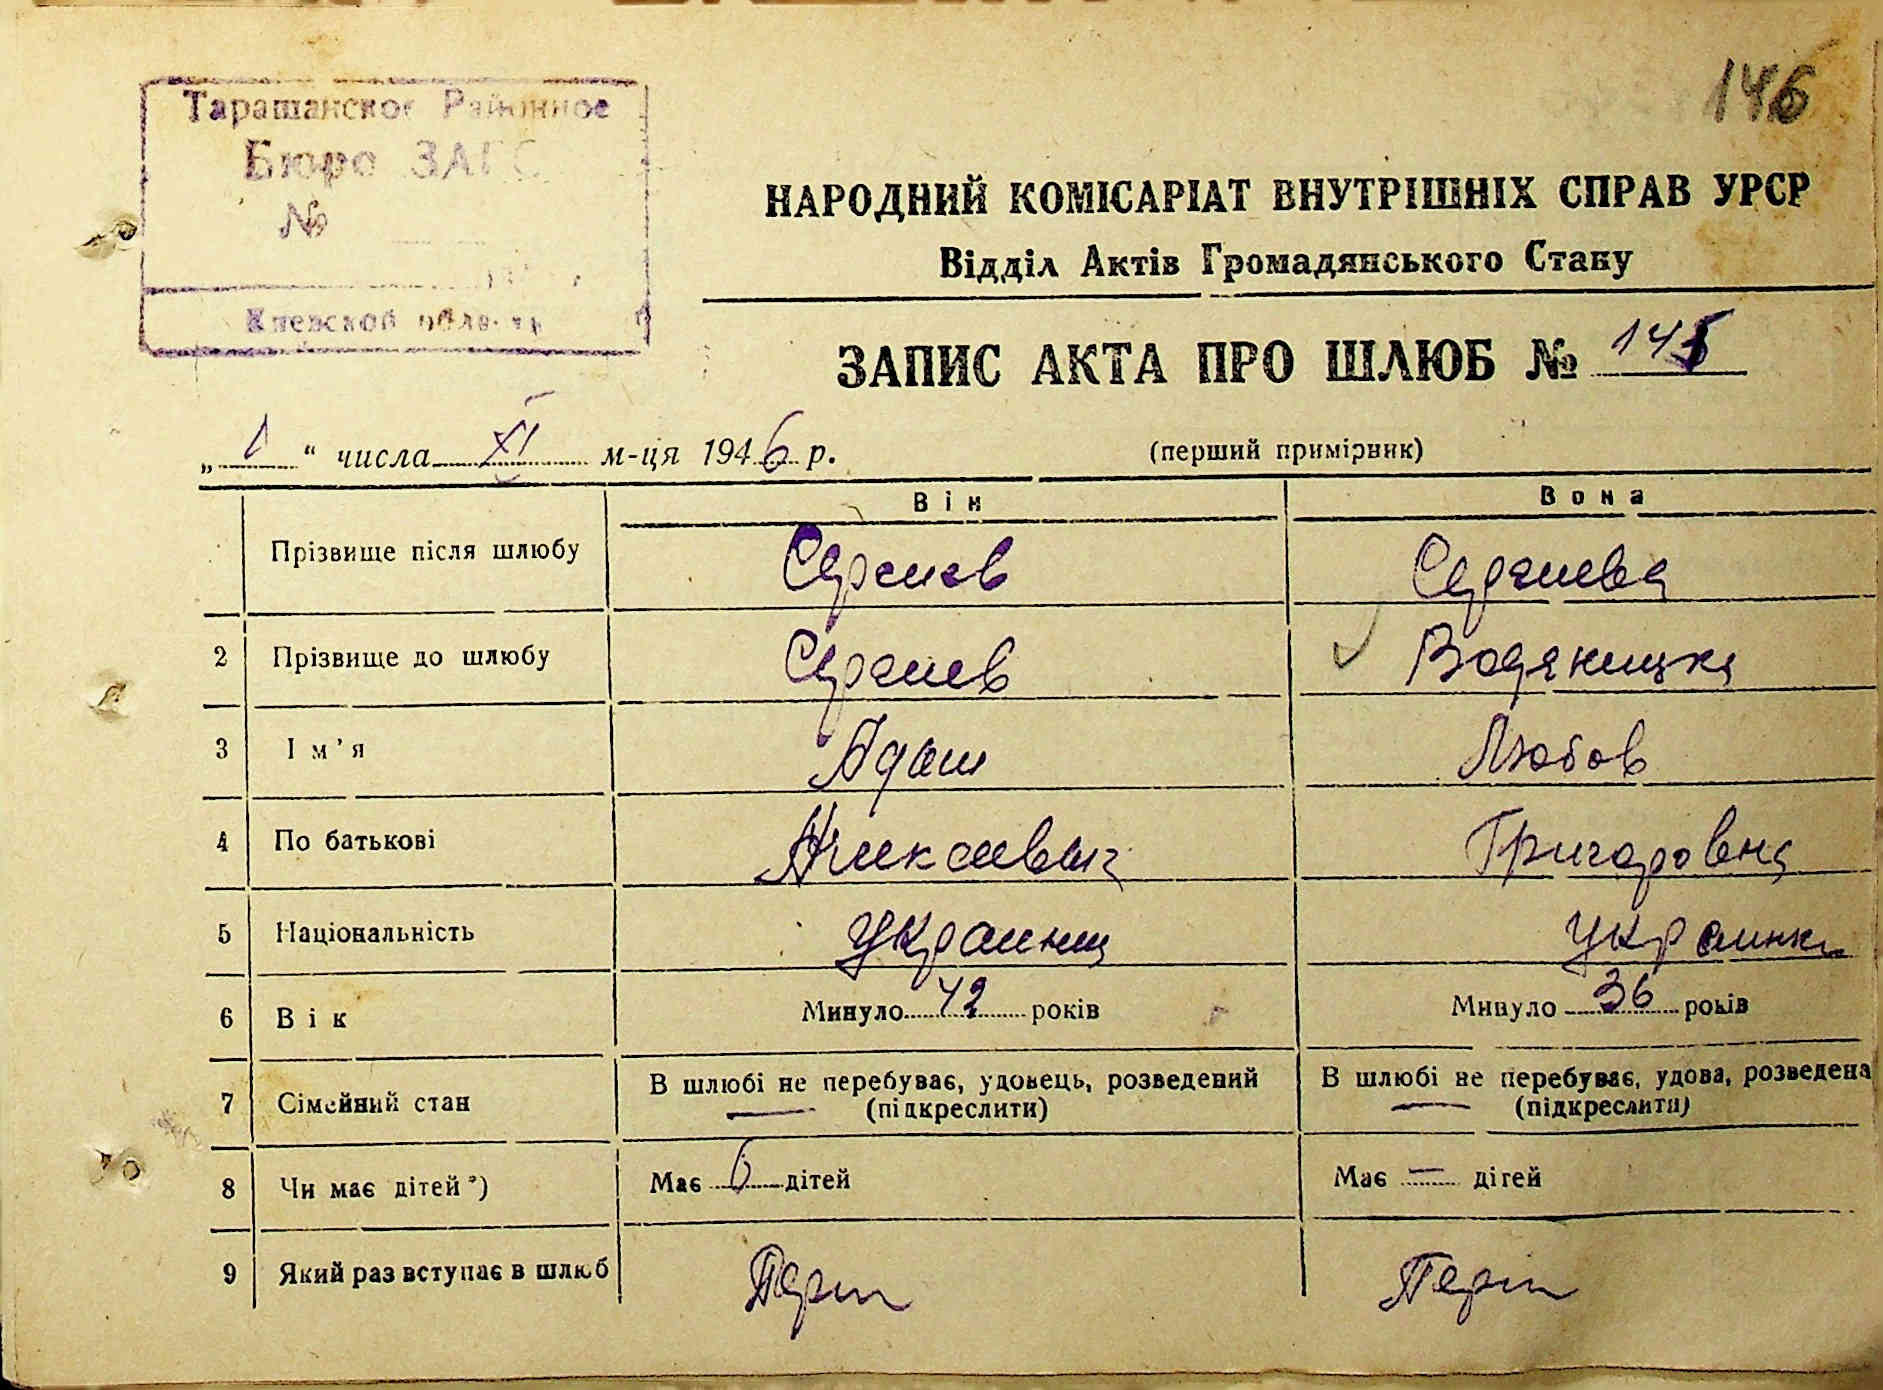 146
Таращанское Районное
Бюро ЗАГС
№
Киевской области
НАРОДНИЙ КОМІСАРІАТ ВНУТРІШНІХ СПРАВ УРСР
Відділ Актів Громадянського Стану
ЗАПИС АКТА ПРО ШЛЮБ №
„ 1 “ числа XI м-ця 1946 р. (перший примірник)
Він Вона
Прізвище після шлюбу Сергиев Сергиева
2 Прізвище до шлюбу Сергиев Водяницка
3 Ім’я Адам Любов
4 По батькові Аликсиевич Григоровна
5 Національність Украинец Украинка
6 Вік Минуло 42 років Минуло 36 років
7 Сімейний стан В шлюбі не перебуває, удовець, розведений (підкреслити) В шлюбі не перебуває, удова, розведена (підкреслити)
8 Чи має дітей*) Має дітей Має — дітей
9 Який раз вступає в шлюб Перш Перш